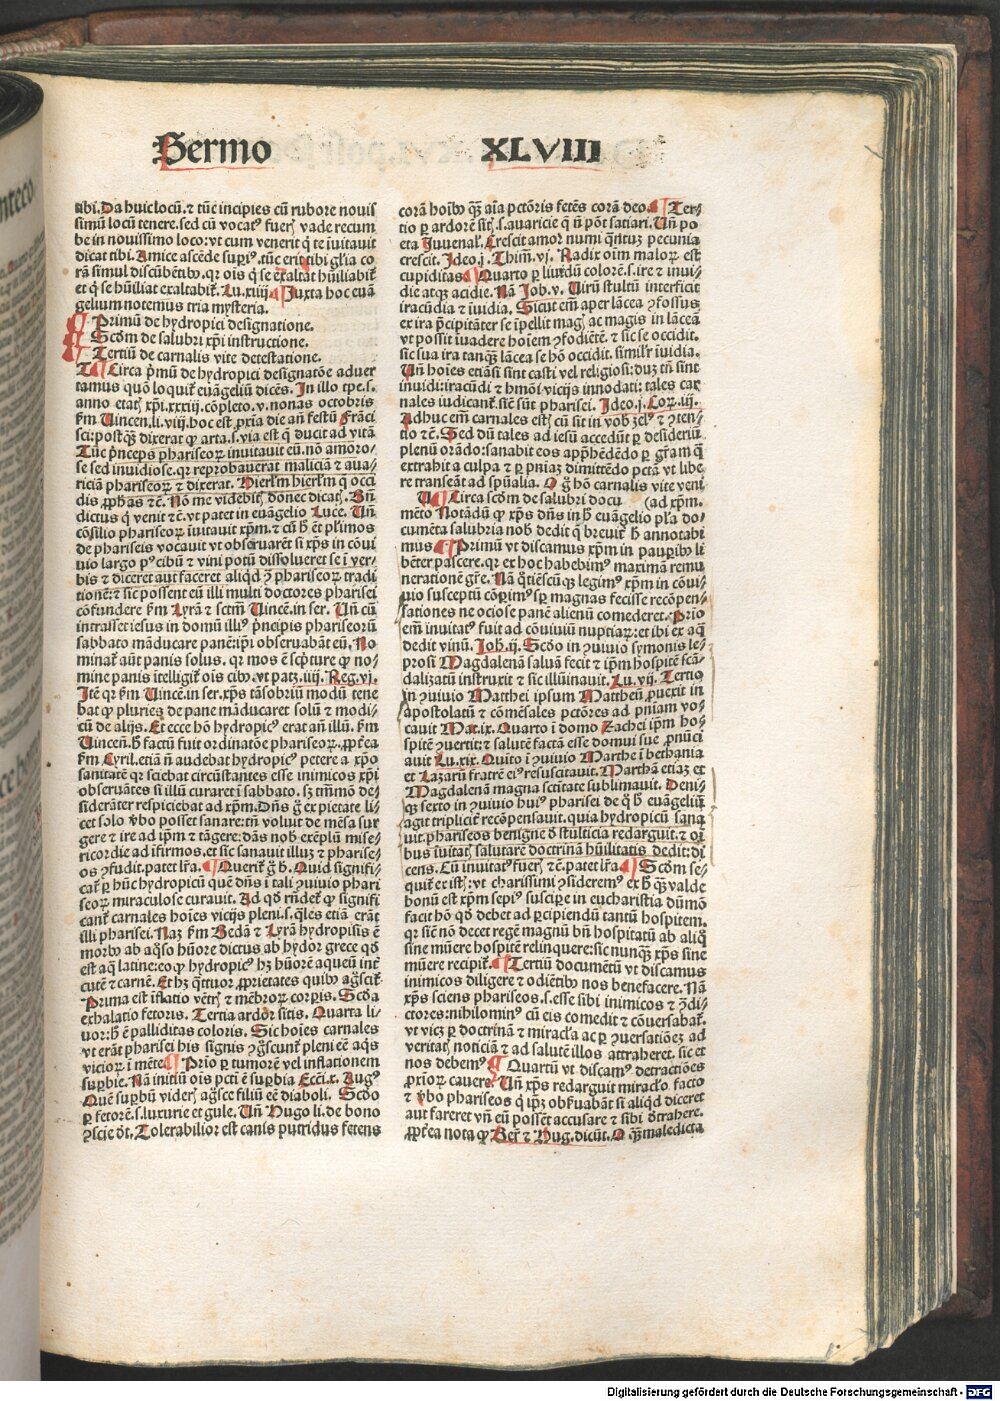 Sermo XLVIII
tibi. Da huic locū. ⁊ tūc incipies cū rubore nouis
simū locū tenere. sed cū vocatꝰ fuerꝭ vade recum
be in nouissimo loco: vt cum venerit q̄ te iuitauit
dicat tibi. Amice ascēde suꝑiꝰ. tūc erit tibi gl̄ia co
rā simul discūbētibꝰ. qꝛ ois q̇ se exaltat hūiliabit᷑
et q̇ se hūiliat exaltabit᷑. Lu. xiiij ¶ Juxta hoc euā
gelium notemus tria mysteria.
Primū de hydropici designatione.
Scd̄m de salubri xp̄i instructione.
Tertiū de carnalis vite detestatione.
¶ Circa p̄mū de hydropici designatōe aduer
tamus quō loquit᷑ euāgeliū dicēs. In illo tp̄e. s.
anno etatꝭ xp̄i. xxxij. cōpleto. v. nonas octobris
ẜm Uincen. li. viij. hoc est ꝓxīa die an̄ festū Frāci
sci: postq̄ꝫ dixerat ꝙ arta. s. via est q̄ ducit ad vitā
Tūc p̄nceps phariseoꝝ inuitauit eū. nō amoro-
se sed inuidiose. qꝛ reprobauerat maliciā ⁊ aua/
riciā phariseoꝝ ⁊ dixerat. Hierl̄m hierl̄m q̄ occi
dis ꝓphās ⁊c̄. Nō me videbitꝭ donec dicatꝭ. Bn̄
dictus q̇ venit ⁊c̄. vt patet in euāgelio Luce. Un̄
cōsilio phariseoꝝ iuitauit xp̄m. ⁊ cū h̄ ēt pl̄imos
de phariseis vocauit vt obseruarēt si xp̄s in cōui
uio largo pꝰ cibū ⁊ vini potū dissolueret se ī ver-
bis ⁊ diceret aut faceret aliqd̄ ꝯ̄ phariseoꝝ tradi
tionē: ⁊ sic possent eū illi multi doctores pharisei
cōfundere ẜm Lyrā ⁊ sctm̄ Uincē. in ser. Un̄ cū
intrasset iesus in domū illiꝰ p̄ncipis phariseorū
sabbato māducare panē: ip̄i obseruabāt eū. No
minat᷑ aūt panis solus. qꝛ mos ē sc̄pture ꝙ no/
mine panis ītelligit᷑ ois cibꝰ. vt patꝫ. iiij. Reg. vj.
Itē qꝛ ẜm Uincē. in ser. xp̄s tā sobriū modū tene
bat ꝙ pluries de pane māducaret solū ⁊ modi/
cū de alijs. Et ecce hō hydropicꝰ erat an̄ illū. ẜm
Uincen̄. h̄ factū fuit ordinatōe phariseoꝝ. ꝓpt̄ea
ẜm Cyril. etiā n̄ audebat hydropicꝰ petere a xp̄o
sanitatē qꝛ sciebat circūstantes esse inimicos xp̄i
obseruātes si illū curaret ī sabbato. sꝫ tm̄mō de/
siderāter respiciebat ad xp̄m. Dn̄s g̊ ex pietate li/
cet solo v̄bo posset sanare: tn̄ voluit de mēsa sur
gere ⁊ ire ad ip̄m ⁊ tāgere: dās nob̄ exēplū mise/
ricordie ad īfirmos. et sic sanauit illuꝫ ⁊ pharise-
os ꝯfudit. patet lr̄a. ¶ Querit᷑ g̊ h̄. Quid signifi-
cat᷑ ꝑ hūc hydropicū quē dn̄s ī tali ꝯuiuio phari
seoꝝ miraculose curauit. Ad qd̊ rn̄det᷑ ꝙ signifi
cant᷑ carnales hoīes vicijs pleni. s. q̄les etiā erāt
illi pharisei. Naꝫ ẜm Bedā ⁊ Lyrā hydropisis ē
morbꝰ ab aq̄oso hūore dictus ab hydor grece qd̊
est aq̄ latine: eo ꝙ hydropicꝰ hꝫ hūorē aqueū int̄
cutē ⁊ carnē. Et hꝫ q̄ttuor ꝓprietates quibꝰ agsc̄it᷑
Prima est īflatio vētrꝭ ⁊ mēbroꝝ corꝑis. Scd̄a
exhalatio fetoris. Tertia ardor sitis. Quarta li/
uor: h̄ ē palliditas coloris. Sic hoīes carnales
vt erāt pharisei his signis ꝯgscunt᷑ pleni eē aq̄s
vicioꝝ ī mēte ¶ Prīo ꝑ tumorē vel inflationem
suꝑbie. Nā initiū ois pctī ē suꝑbia Ecci. x. Augꝰ
Quē suꝑbū viderꝭ agscē filiū eē diaboli. Scd̊o
ꝑ fetorē. s. luxurie et gule. Un̄ Hugo li. de bono
ꝯscie dt̄. Tolerabilior est canis putridus fetens
corā hoībꝰ q̄ꝫ aīa pctōris fetēs corā deo. ¶ Ter/
tio ꝑ ardorē sitꝭ. s. auaricie q̄ n̄ pōt satiari. Un̄ po
eta Juuenal᷑. Crescit amor numi q̄ntuꝫ pecunia
crescit. Ideo. j. Thim̄. vj. Radix oim maloꝝ est
cupiditas ¶ Quarto ꝑ liuidū colorē. s. ire ⁊ inui/
die atqꝫ acidie. Nā Job. v. Uirū stultū interficit
iracūdia ⁊ iuidia. Sicut em̄ aper lācea ꝯfossus
ex ira p̄cipitāter se īpellit magꝭ ac magis in lāceā
vt possit iuadere hoīem ꝯfodiētē. ⁊ sic se occidit.
sic sua ira tanq̄ꝫ lācea se hō occidit. simil᷑r iuidia.
Un̄ hoīes etiā si sint casti vel religiosi: duꝫ tn̄ sint
inuidi: iracūdi ⁊ hmōi vicijs innodati: tales car
nales iudicant᷑. sic̄ sūt pharisei. Ideo. j. Coꝝ. iij.
Adhuc em̄ carnales estꝭ cū sit in vob̄ zelꝰ ⁊ ꝯten-
tio ⁊c̄. Sed dū tales ad iesū accedūt ꝑ desideriū
plenū orādo: sanabit eos app̄hēdēdo ꝑ gr̄am q̄
extrahit a culpa ⁊ ꝑ pn̄iaꝫ dimittēdo pctā vt libe
re transeāt ad sp̄ualia. O g̊ hō carnalis vite veni
¶ Circa scd̄m de salubri docu (ad xp̄m.
mēto Notādū ꝙ xp̄s dn̄s in h̄ euāgelio pl̄a do/
cumēta salubria nob̄ dedit q̄ breuit᷑ h̄ annotabi
mus ¶ Primū vt discamus xp̄m in pauꝑibꝰ li
bēter pascere. qꝛ ex hoc habebimꝰ maximā remu
nerationē gr̄e. Nā q̊tiēscūqꝫ legimꝰ xp̄m in cōui/
uio susceptū cōꝑimꝰ sꝑ magnas fecisse recōpen/
sationes ne ociose panē alienū comederet. Prīo
em̄ inuitatꝰ fuit ad cōuiuiū nuptiaꝝ: et ibi ex aq̄
dedit vinū. Joh. ij. Scd̊o in ꝯuiuio symonis le/
prosi Magdalenā saluā fecit ⁊ ip̄m hospitē scā-
dalizatū instruxit ⁊ sic illūinauit. Lu. vij. Tertio
in ꝯuiuio Matthei ipsum Mattheū ꝓuexit in
apostolatū ⁊ cōmēsales pctōres ad pn̄iam vo/
cauit Mat. ix. Quarto ī domo Zachei ip̄m ho/
spitē ꝯuertit: ⁊ salutē factā esse domui sue ꝓnūci
auit Lu. xix. Quito ī ꝯuiuio Marthe ī bethania
et Lazarū fratrē eiꝰ resuscitauit. Marthā etiaꝫ et
Magdalenā magna sctitate sublimauit. Deni/
qꝫ sexto in ꝯuiuio huiꝰ pharisei de q̊ h̄ euāgeliū
agit triplicit᷑ recōpensauit. quia hydropicū sana
uit. phariseos benigne d̄ stulticia redarguit. ⁊ oi
bus iuitatꝭ salutarē doctrinā hūilitatis dedit: di
cens. Cū inuitatꝰ fuerꝭ ⁊c̄. patet lr̄a ¶ Scd̄m se-
quit᷑ ex istꝭ: vt charissimi ꝯsideremꝰ ex h̄ q̄ꝫ valde
bonū est xp̄m sepiꝰ susciꝑe in eucharistia dūmō
facit hō qd̊ debet ad ꝑcipiendū tantū hospitem.
qꝛ sic̄ nō decet regē magnū bn̄ hospitatū ab aliq̊
sine mūere hospitē relinquere: sic nunq̄ꝫ xp̄s sine
mūere recipit᷑. ¶ Tertiū documētū vt discamus
inimicos diligere ⁊ odiētibꝰ nos benefacere. Nā
xp̄s sciens phariseos. s. esse sibi inimicos ⁊ ꝯ̄di/
ctores: nihilominꝰ cū eis comedit ⁊ cōuersabat᷑.
vt vicꝫ ꝑ doctrinā ⁊ miracl̄a ac ꝑ ꝯuersatiōeꝫ ad
veritatꝭ noticiā ⁊ ad salutē illos attraheret. sic et
nos debemꝰ ¶ Quartū vt discamꝰ detractiōes
ꝓxīoꝝ cauere. Un̄ xp̄s redarguit miracl̄o facto
⁊ v̄bo phariseos q̇ ip̄ꝫ obẜuabāt si aliqd̄ diceret
aut faret vn̄ eū possēt accusare ⁊ sibi d̄trahere.
ꝓpt̄ea nota ꝙ Ber̄ ⁊ Hug. dicūt. O q̄ꝫ maledicta
Digitalisierung gefördert durch die Deutsche Forschungsgemeinschaft - DFG